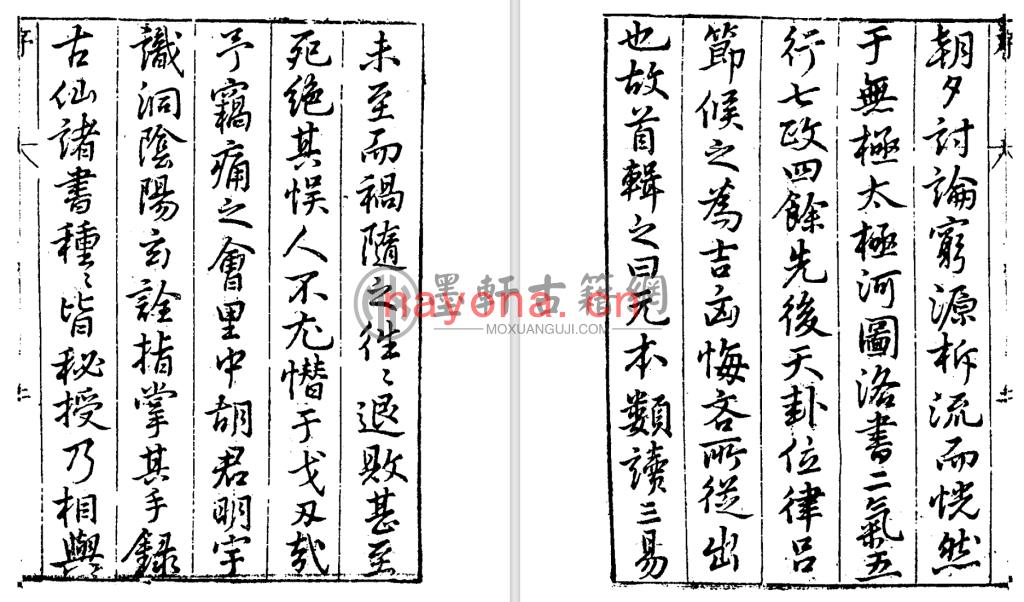 未至而禍隨之徃〻退敗甚至
死絶其悮人不尤憯于戈刃哉
予竊痛之會里中胡君明宇
識洞陰陽玄詮指掌其手錄
古仙諸書種〻皆秘授乃相與
序 六
朝夕討論窮源析流而恍然
于無極太極河圖洛書二氣五
行七政四餘先後天卦位律呂
節候之為吉凶悔吝所從出
也故首輯之曰元本類讀三易
墨軒古籍網
MOXUANGUJI.COM
nayona.cn